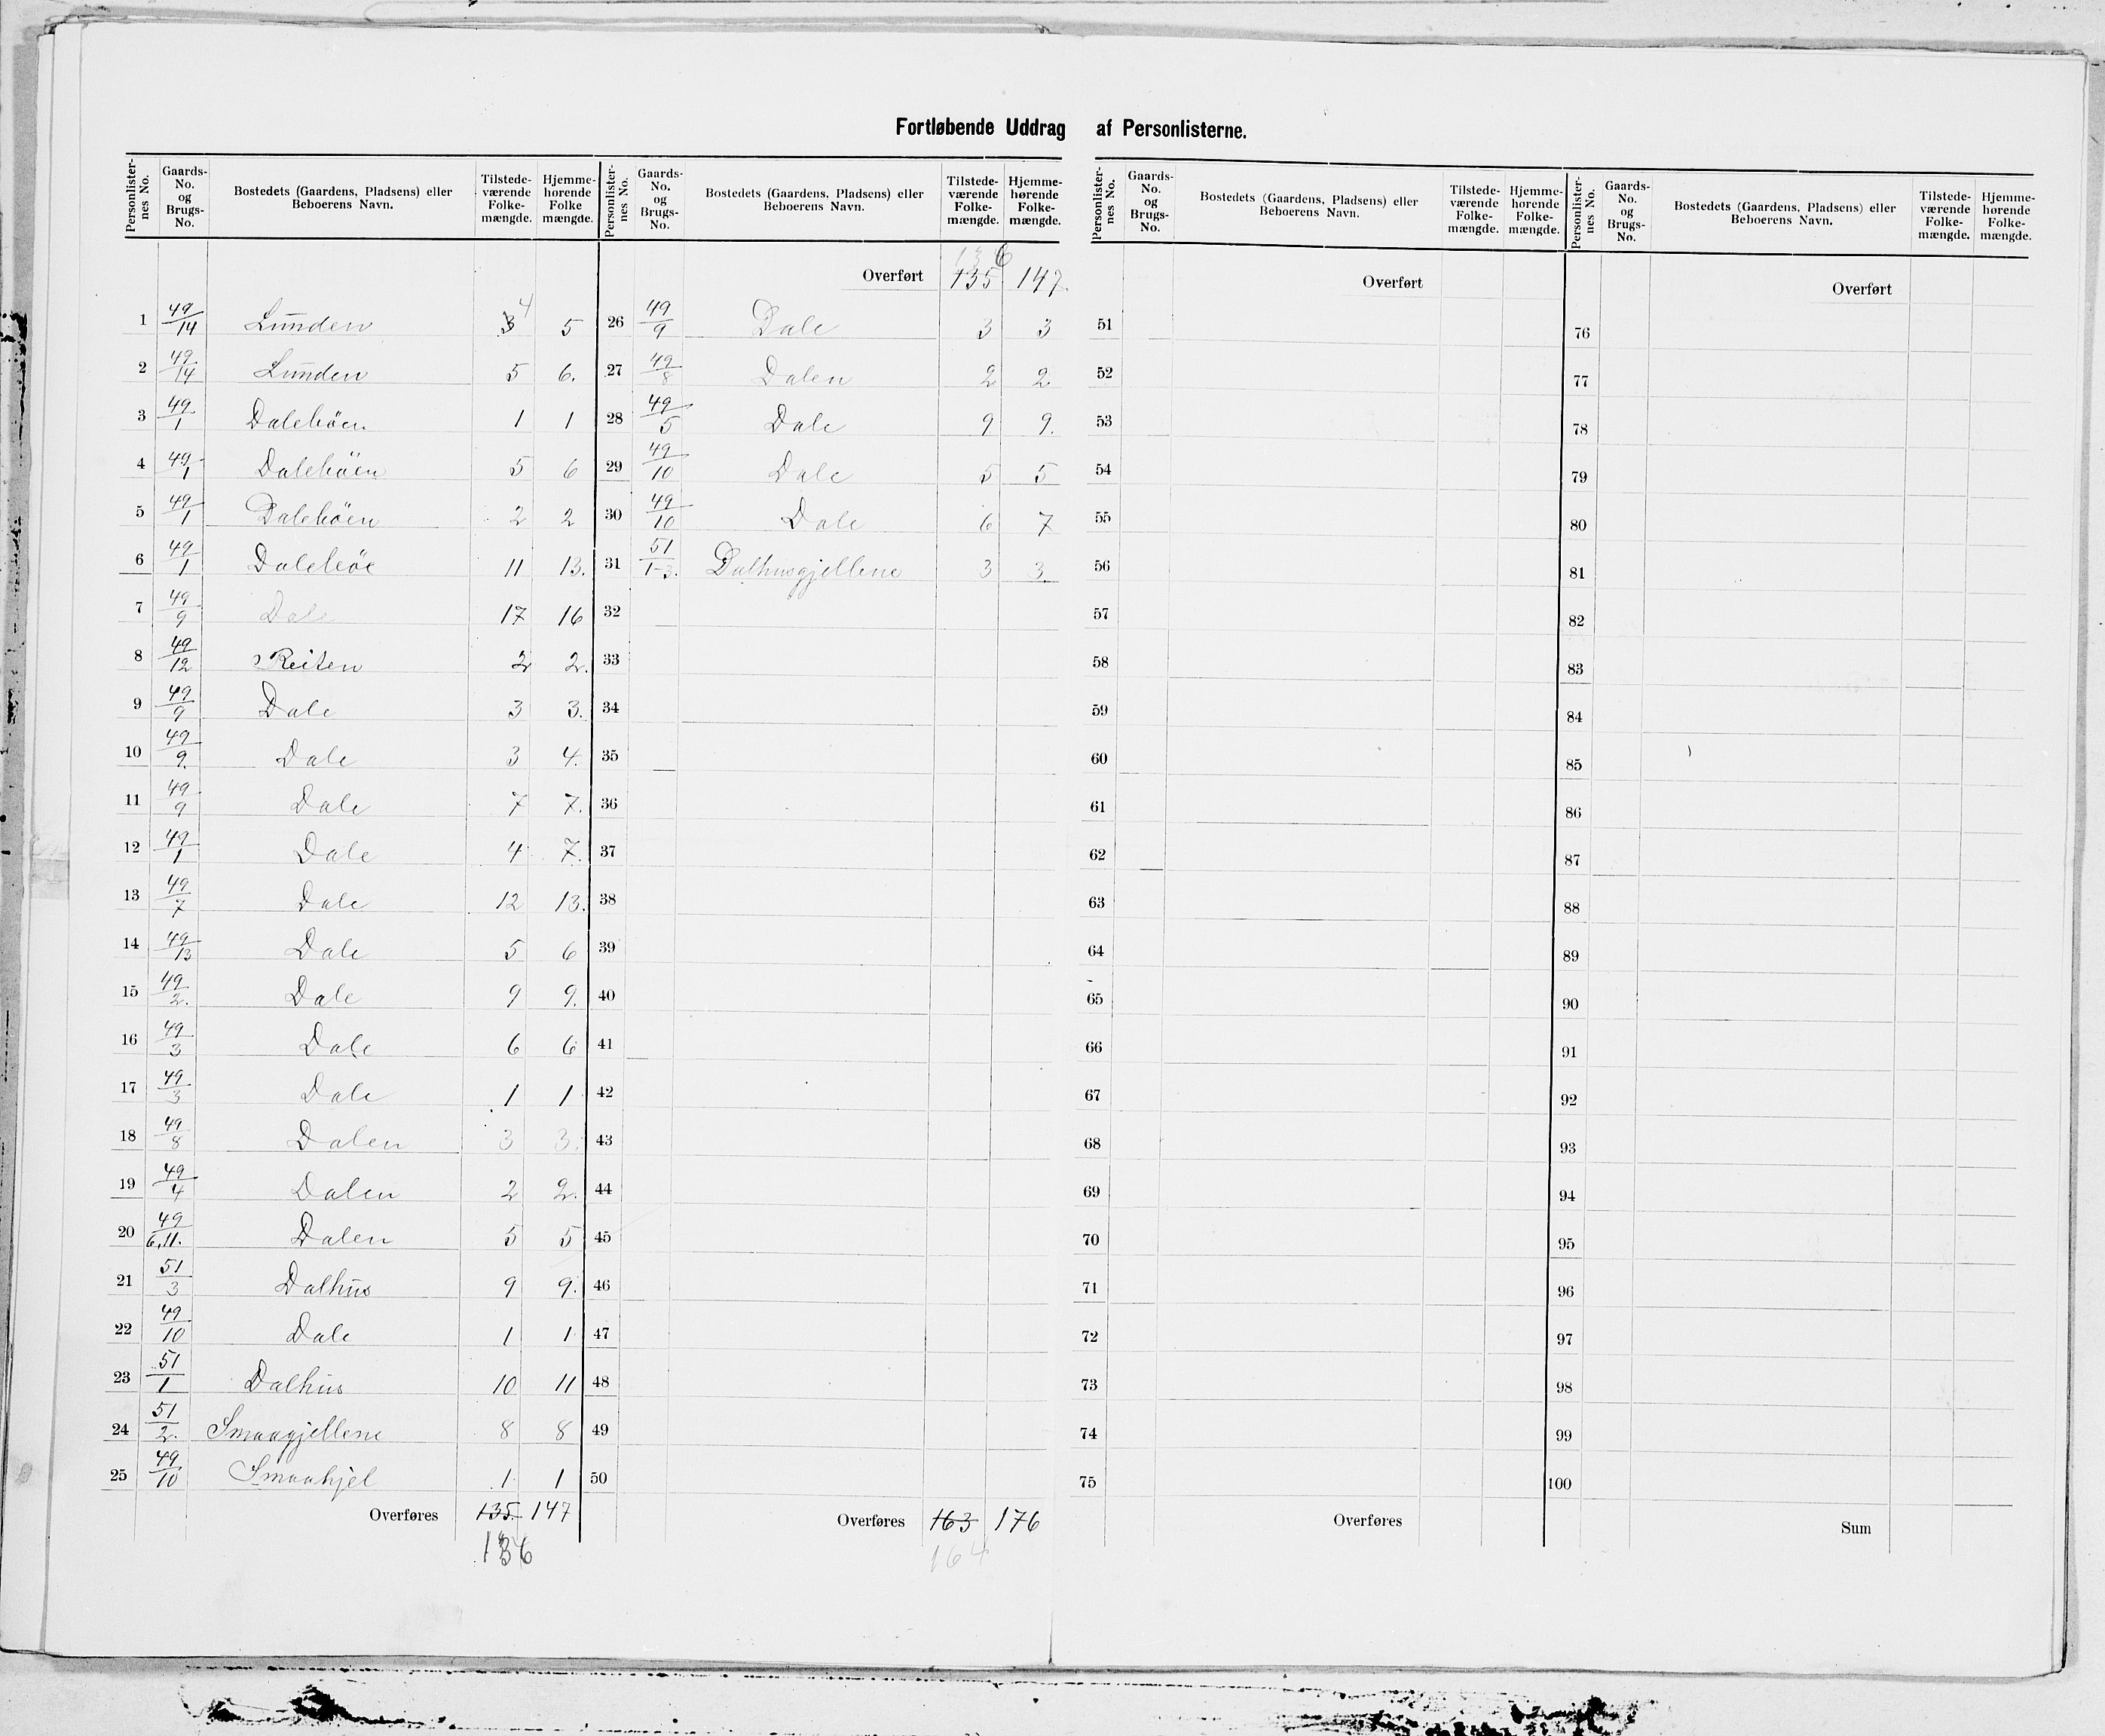 Fortløbende Uddrag af Personlisterne.
Personlister-nes No. | Gaards-No. og Brugs-No. | Bostedets (Gaardens, Pladsens) eller Beboerens Navn. | Tilstede-værende Folke-mængde. | Hjemme-hørende Folke mængde.
1 49/14 Lunden 3 4 5
2 49/14 Lunden 5 6.
3 49/1 Daleböen. 1 1
4 49/1 Daleböen 5 6
5 49/1 Daleböen 2 2
6 49/1 Daleböe 11 13.
7 49/9 Dale 17 16
8 49/12 Reiten 2 2.
9 49/9 Dale 3 3.
10 49/9. Dale 3 4.
11 49/9 Dale 7 7.
12 49/1 Dale 4 7.
13 49/7 Dale 12 13.
14 49/13 Dale 5 6
15 49/2. Dale 9 9.
16 49/3 Dale 6 6
17 49/3 Dale 1 1
18 49/8 Dalen 3 3.
19 49/4 Dalen 2 2.
20 49/6,11. Dalen 5 5
21 51/3 Dalhus 9 9.
22 49/10 Dale 1 1
23 51/1 Dalhus 10 11
24 51/2. Smaagjellene 8 8
25 49/10 Smaahjel 1 1
Overføres 135. 147
136
Personlister-nes No. | Gaards-No. og Brugs-No. | Bostedets (Gaardens, Pladsens) eller Beboerens Navn. | Tilstede-værende Folke-mængde. | Hjemme-hørende Folke-mængde.
136
Overført 135 147.
26 49/9 Dale 3 3
27 49/8 Dalen 2 2
28 49/5 Dale 9 9.
29 49/10 Dale 5 5
30 49/10 Dale 6 7
31 51/1-3. Dalhusgjellene 3 3
32
33
34
35
36
37
38
39
40
41
42
43
44
45
46
47
48
49
50
Overføres 163 176
164
Personlister-nes No. | Gaards-No. og Brugs-No. | Bostedets (Gaardens, Pladsens) eller Beboerens Navn. | Tilstede-værende Folke-mængde. | Hjemme-hørende Folke-mængde.
Overført
51
52
53
54
55
56
57
58
59
60
61
62
63
64
65
66
67
68
69
70
71
72
73
74
75
Overføres
Personlister-nes No. | Gaards-No. og Brugs-No. | Bostedets (Gaardens, Pladsens) eller Beboerens Navn. | Tilstede-værende Folke-mængde. | Hjemme-hørende Folke-mængde.
Overført
76
77
78
79
80
81
82
83
84
85
86
87
88
89
90
91
92
93
94
95
96
97
98
99
100
Sum